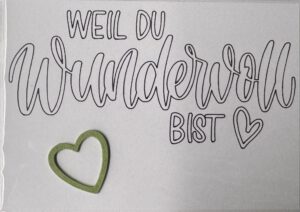 WEIL DU
Wundervoll
BIST